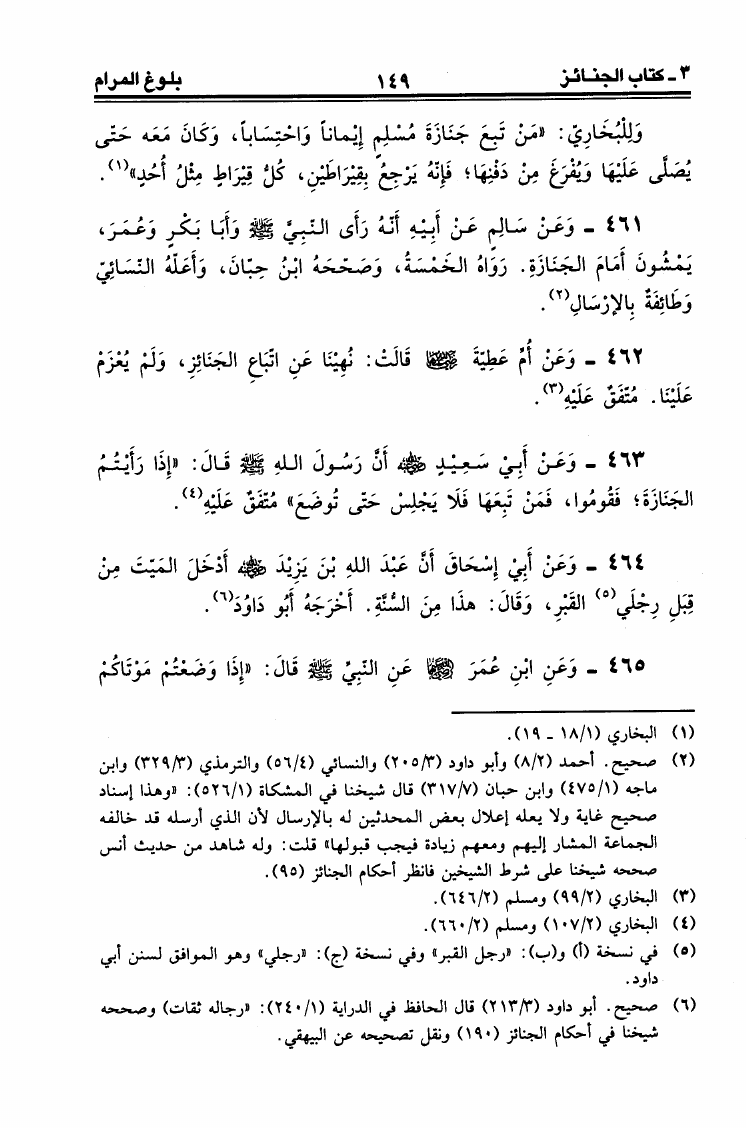 ٣ ـ كتاب الجنائز ١٤٩ بلوغ المرام
وَلِلْبُخَارِيِّ: «مَنْ تَبِعَ جَنَازَةَ مُسْلِمٍ إِيْمَاناً وَاحْتِسَاباً، وَكَانَ مَعَه حَتَّى
يُصَلَّى عَلَيْهَا وَيُفْرَغَ مِنْ دَفْنِهَا؛ فَإِنَّهُ يَرْجِعُ بِقِيْرَاطَيْنِ، كُلُّ قِيْرَاطٍ مِثْلُ أُحُدٍ»(١).
٤٦١ ـ وَعَنْ سَالِمٍ عَنْ أَبِيْهِ أَنَّهُ رَأَى النَّبِيَّ ﷺ وَأَبَا بَكْرٍ وَعُمَرَ،
يَمْشُونَ أَمَامَ الجَنَازَةِ. رَوَاهُ الخَمْسَةُ، وَصَحَّحَهُ ابْنُ حِبَّانَ، وَأَعَلَّهُ النَّسَائِيُّ
وَطَائِفَةٌ بِالإِرْسَالِ(٢).
٤٦٢ ـ وَعَنْ أُمِّ عَطِيَّةَ رضي الله عنها قَالَتْ: نُهِيْنَا عَنِ اتِّبَاعِ الجَنَائِزِ، وَلَمْ يُعْزَمْ
عَلَيْنَا. مُتَّفَقٌ عَلَيْهِ(٣).
٤٦٣ ـ وَعَنْ أَبِيْ سَعِيْدٍ رضي الله عنه أَنَّ رَسُولَ اللهِ ﷺ قَالَ: «إِذَا رَأَيْتُمُ
الجَنَازَةَ؛ فَقُومُوا، فَمَنْ تَبِعَهَا فَلَا يَجْلِسْ حَتَّى تُوضَعَ» مُتَّفَقٌ عَلَيْهِ(٤).
٤٦٤ ـ وَعَنْ أَبِيْ إِسْحَاقَ أَنَّ عَبْدَ اللهِ بْنَ يَزِيْدَ رضي الله عنه أَدْخَلَ المَيِّتَ مِنْ
قِبَلِ رِجْلَي(٥) القَبْرِ، وَقَالَ: هذَا مِنَ السُّنَّةِ. أَخْرَجَهُ أَبُو دَاوُدَ(٦).
٤٦٥ ـ وَعَنِ ابْنِ عُمَرَ رضي الله عنهما عَنِ النَّبِيِّ ﷺ قَالَ: «إِذَا وَضَعْتُمْ مَوْتَاكُمْ
(١) البخاري (١/ ١٨ ـ ١٩).
(٢) صحيح. أحمد (٨/٢) وأبو داود (٢٠٥/٣) والنسائي (٥٦/٤) والترمذي (٣٢٩/٣) وابن
ماجه (٤٧٥/١) وابن حبان (٣١٧/٧) قال شيخنا في المشكاة (٥٢٦/١): «وهذا إسناد
صحيح غاية ولا يعله إعلال بعض المحدثين له بالإرسال لأن الذي أرسله قد خالفه
الجماعة المشار إليهم ومعهم زيادة فيجب قبولها» قلت: وله شاهد من حديث أنس
صححه شيخنا على شرط الشيخين فانظر أحكام الجنائز (٩٥).
(٣) البخاري (٩٩/٢) ومسلم (٦٤٦/٢).
(٤) البخاري (١٠٧/٢) ومسلم (٦٦٠/٢).
(٥) في نسخة (أ) و(ب): «رجل القبر» وفي نسخة (ج): «رجلي» وهو الموافق لسنن أبي
داود.
(٦) صحيح. أبو داود (٢١٣/٣) قال الحافظ في الدراية (٢٤٠/١): «رجاله ثقات) وصححه
شيخنا في أحكام الجنائز (١٩٠) ونقل تصحيحه عن البيهقي.